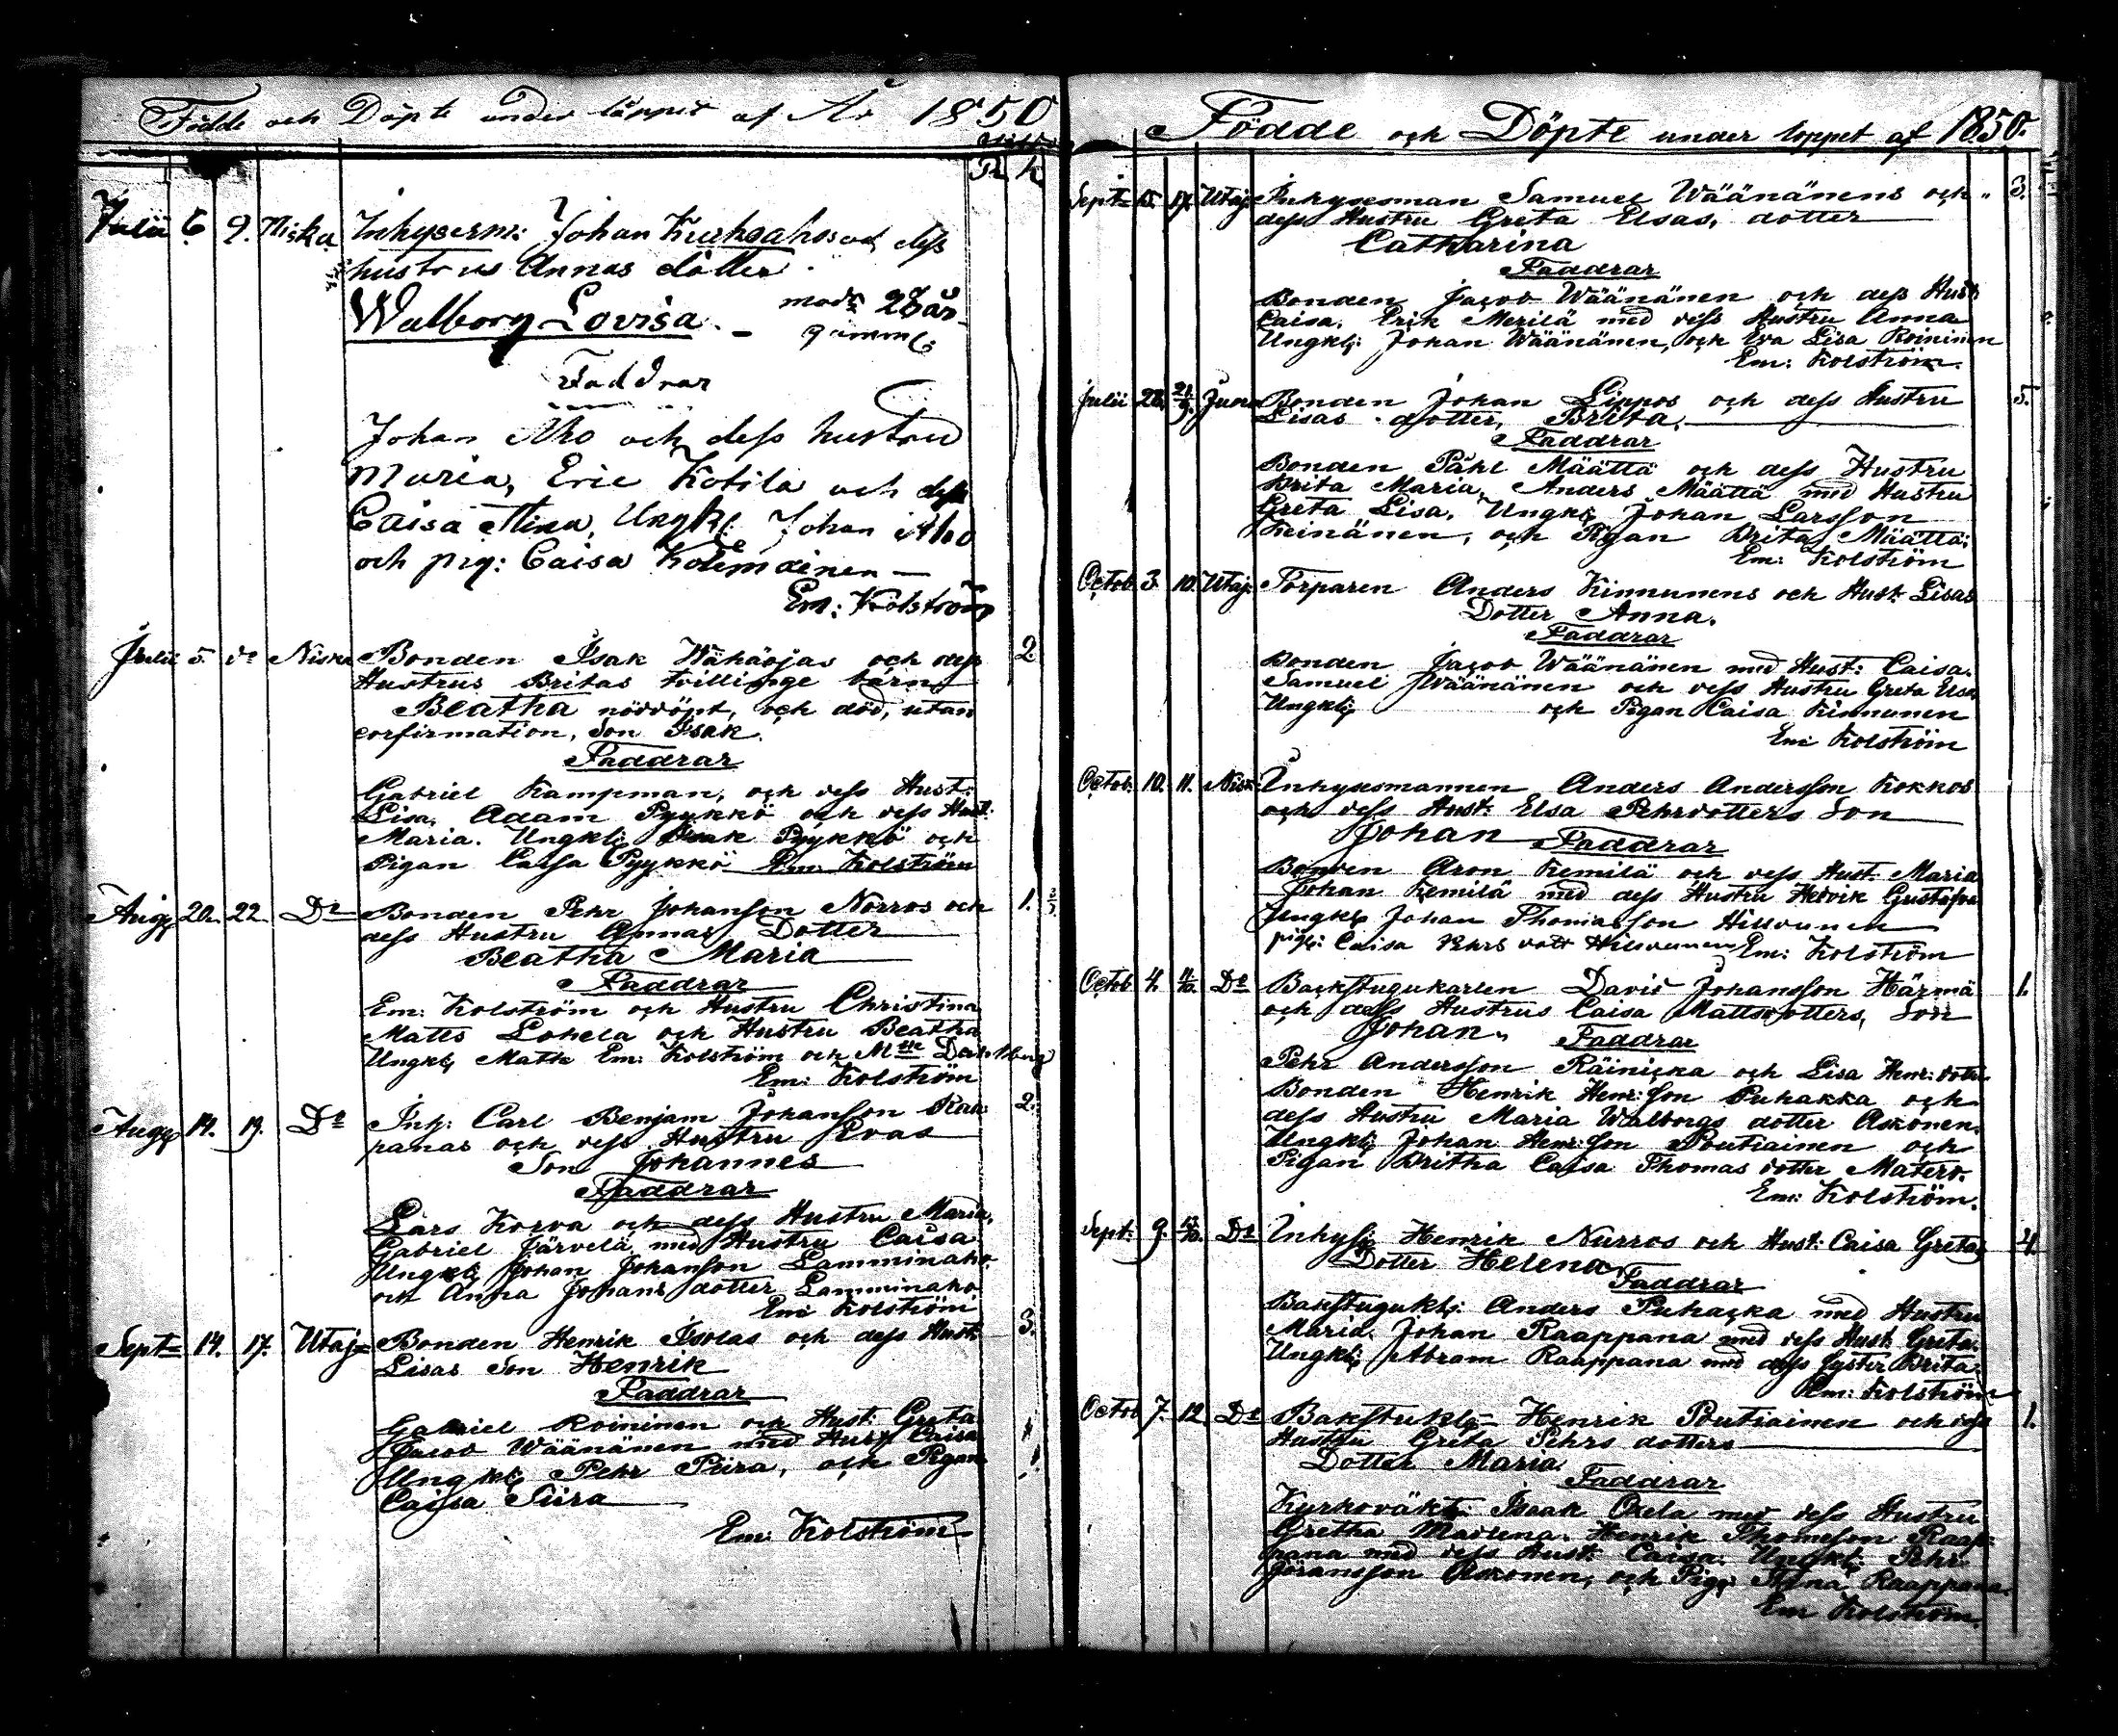 Födde och Döpte under loppet af År 1850
Julii 6 9. Niska Inhysesm: Johan Kurkoahos och dess
hustrus Annas dotter.
Walborg Lovisa. — modr 28 år
gamml:
Faddrar
Johan Aho och dess hustru
Maria, Eric Kotila och dess
Caisa Stina, Ungk: Johan Aho
och pig: Caisa Kolemainen —
Em: Kolström
Julii 5. do Niska Bonden Isak Wähäojas och dess 2
Hustrus Britas tvillinge barn
Beatha nöddöpt, och död, utan
confirmation, Son Isak.
Faddrar
Gabriel Kampman, och dess Hust:
Lisa, Adam Pyykkö och dess Hust:
Maria. Ungkl: Isak Pyykkö och
Pigan Caisa Pyykkö Em: Kolström
Aug 20. 22 Do Bonden Pehr Johansson Norros och 1.
dess Hustru Annas Dotter
Beatha Maria
Faddrar
Em: Kolström och Hustru Christina
Matts Lohela och Hustru Beatha
Ungkl: Math Em: Kolström och Mlle
Em: Kolström
Aug 14. 19. Do Inh: Carl Benjam Johansson Raa- 2.
panas och dess Hustru Evas
Son Johannes
Faddrar
Lars Korva och dess Hustru Maria,
Gabriel Järvelä med Hustru Caisa
Ungkl: Johan Johanson Lamminaho
och Anna Johans dotter Lamminaho
Em: Kolström
Sept= 14. 17. Utaj= Bonden Henrik Isolas och dess Hust: 3.
Lisas Son Henrik
Faddrar
Gabriel Roininen och Hust: Greta
Jacob Wäänänen med Hust: Caisa
Ungkl: Pehr Piira, och Pigan
Caisa Siira
Em: Kolström
Födde och Döpte under loppet af 1850.
Sept= 15. 17. Utaj: Inhysesman Samuel Wäänänens och 3.
dess Hustru Greta Elsas, dotter
Catharina
Faddrar
Bonden Jacob Wäänänen och dess Hust:
Caisa, Erik Merilä med dess Hustru Anna
Ungkl: Johan Wäänänen, och Eva Lisa Roininen
Em: Kolström.
Julii 28. 21/9. Juor Bonden Johan Lippos och dess Hustru 5.
Lisas dotter, Brita.
Faddrar
Bonden Påhl Määttä och dess Hustru
Brita Maria, Anders Määttä med Hustru
Greta Lisa, Ungkl: Johan Larsson
Keinänen, och Pigan Brita Määttä:
Em: Kolström
Octob 3. 10. Utaj: Torparen Anders Kinnunens och Hust: Lisas
Dotter Anna.
Faddrar
Bonden Jacob Wäänänen med Hust: Caisa.
Samuel Wäänänen och dess Hustru Greta Elsa
Ungkl: och Pigan Caisa Kinnunen
Em: Kolström
Octob. 10. 11. Nisk: Inhysesmannen Anders Andersson Kokkos
och dess Hust: Elsa Pehrdotters Son
Johan Faddrar
Bonden Aron Kemilä och dess Hust: Maria
Johan Kemilä med dess Hustru Hedvik Gustafva
Ungkl: Johan Thomasson Hiltunen
pig: Caisa Pehrs dott Hiltunen Em: Kolström
Octob 4. 11/10. Do Backstugukarlen David Johansson Härmä 1.
och dess Hustrus Caisa Mattsdotters, Son
Johan. Faddrar
Pehr Andersson Räinickä och Lisa Henr: dotter
Bonden Henrik Henr: Son Puhakka och
dess Hustru Maria Walborgs dotter Askonen.
Ungkl: Johan Henr: Son Poutiainen och
Pigan Britha Caisa Thomas dotter Matero.
Em: Kolström.
Sept: 9. Do Inhys: Henrik Nurros och Hust: Caisa Gretas 4.
Dotter Helena
Faddrar
Bakstugukl: Anders Puhacka med Hustru
Maria, Johan Raappana med dess Hust: Greta.
Ungkl: Abram Raappana med dess Syster Brita.
Em: Kolström
Octob 7. 12 Do Bakstukl: Henrik Poutiainen och dess 1.
Hustru Greta Pehrs dotters
Dotter Maria
Faddrar
Kurkoväkt: Isaak Oxela med dess Hustru
Gretha Madlena. Henrik Thomsson Raap-
pana med dess Hust: Caisa. Ungkl: Pehr
Göransson Askonen, och Pig: Anna Raappana.
Em: Kolström.